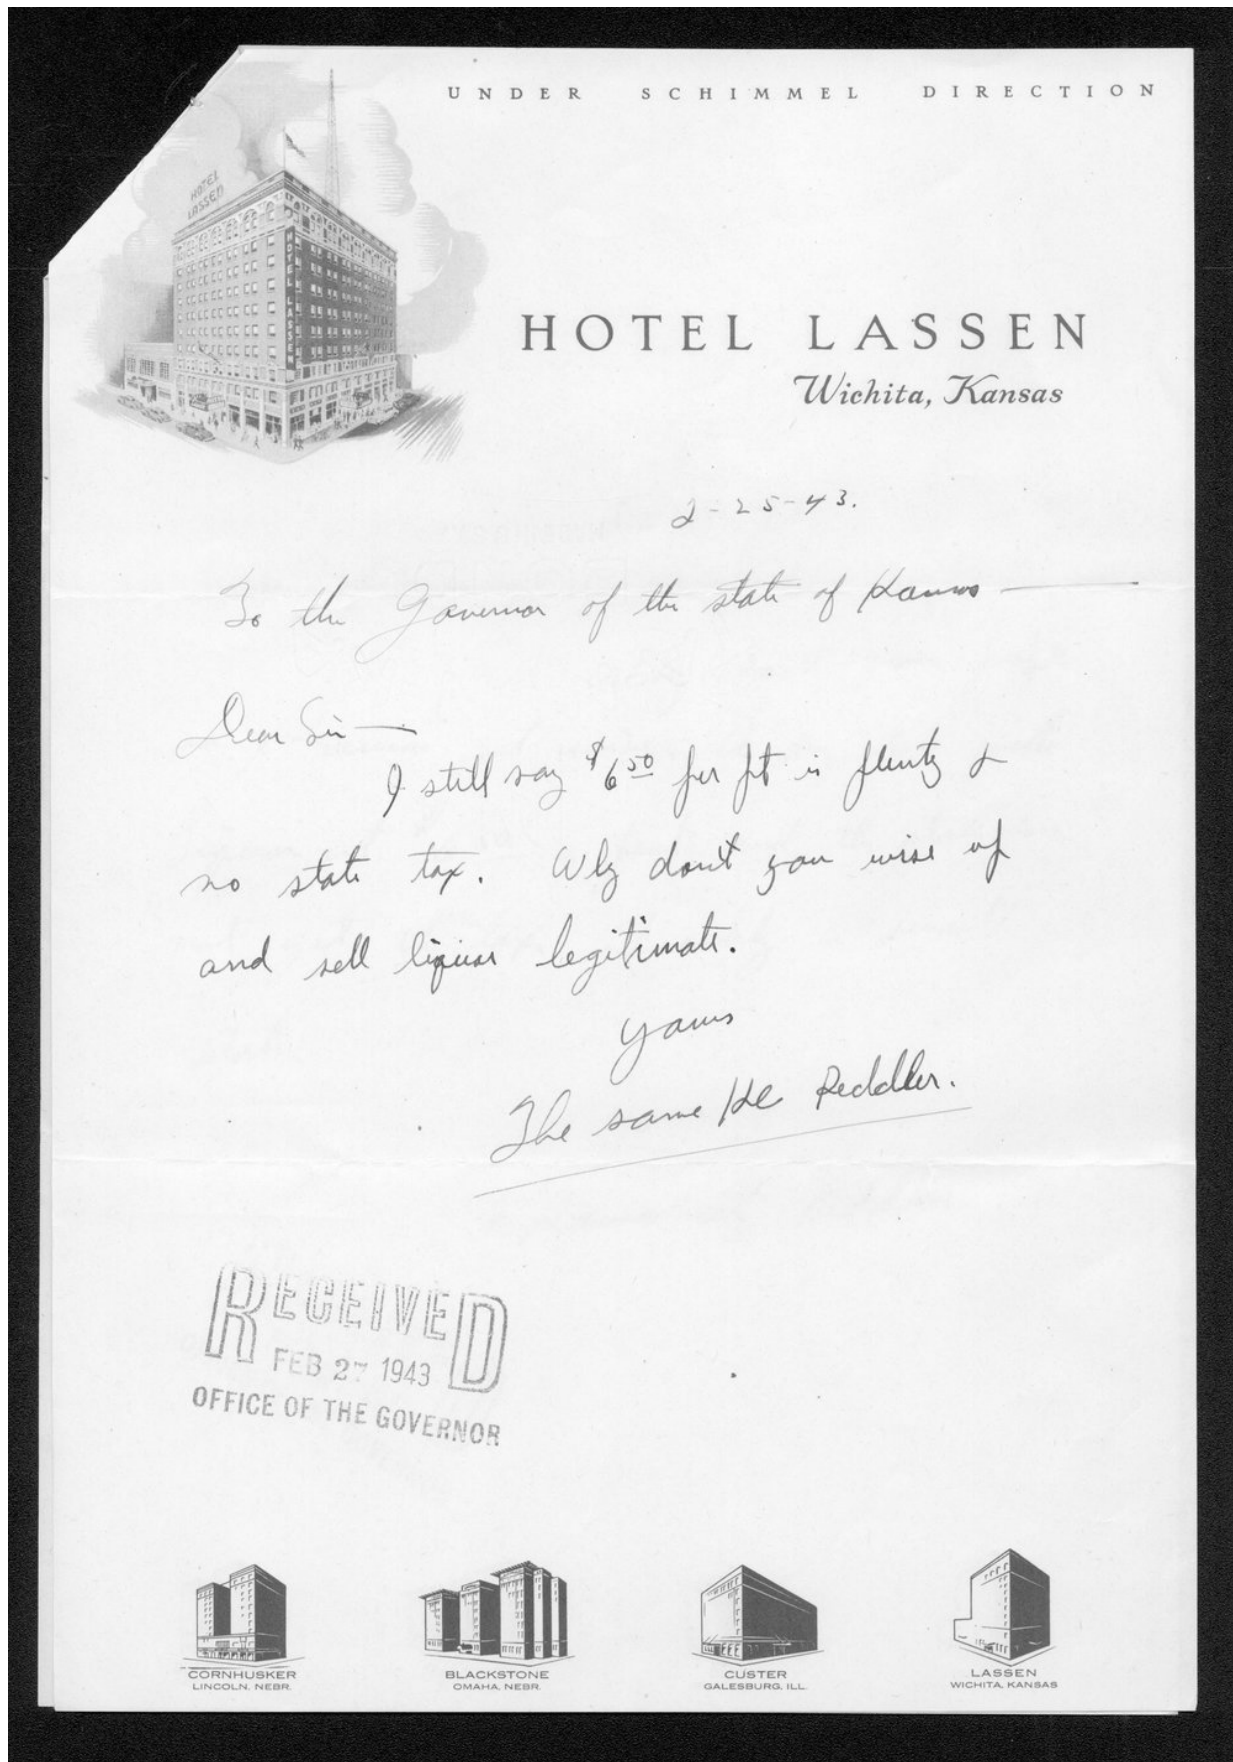 UNDER SCHIMMEL DIRECTION
HOTEL LASSEN
HOTEL LASSEN
HOTEL LASSEN
Wichita, Kansas
2-25-43.
To the Governor of the state of Kansas —
Dear Sir —
I still say $6 50 per pt is plenty &
no state tax. Why don't you wise up
and sell liquor legitimate.
yours
The same Peddler.
RECEIVED
FEB 27 1943
OFFICE OF THE GOVERNOR
CORNHUSKER
LINCOLN, NEBR.
BLACKSTONE
OMAHA, NEBR.
CUSTER
GALESBURG, ILL.
LASSEN
WICHITA, KANSAS